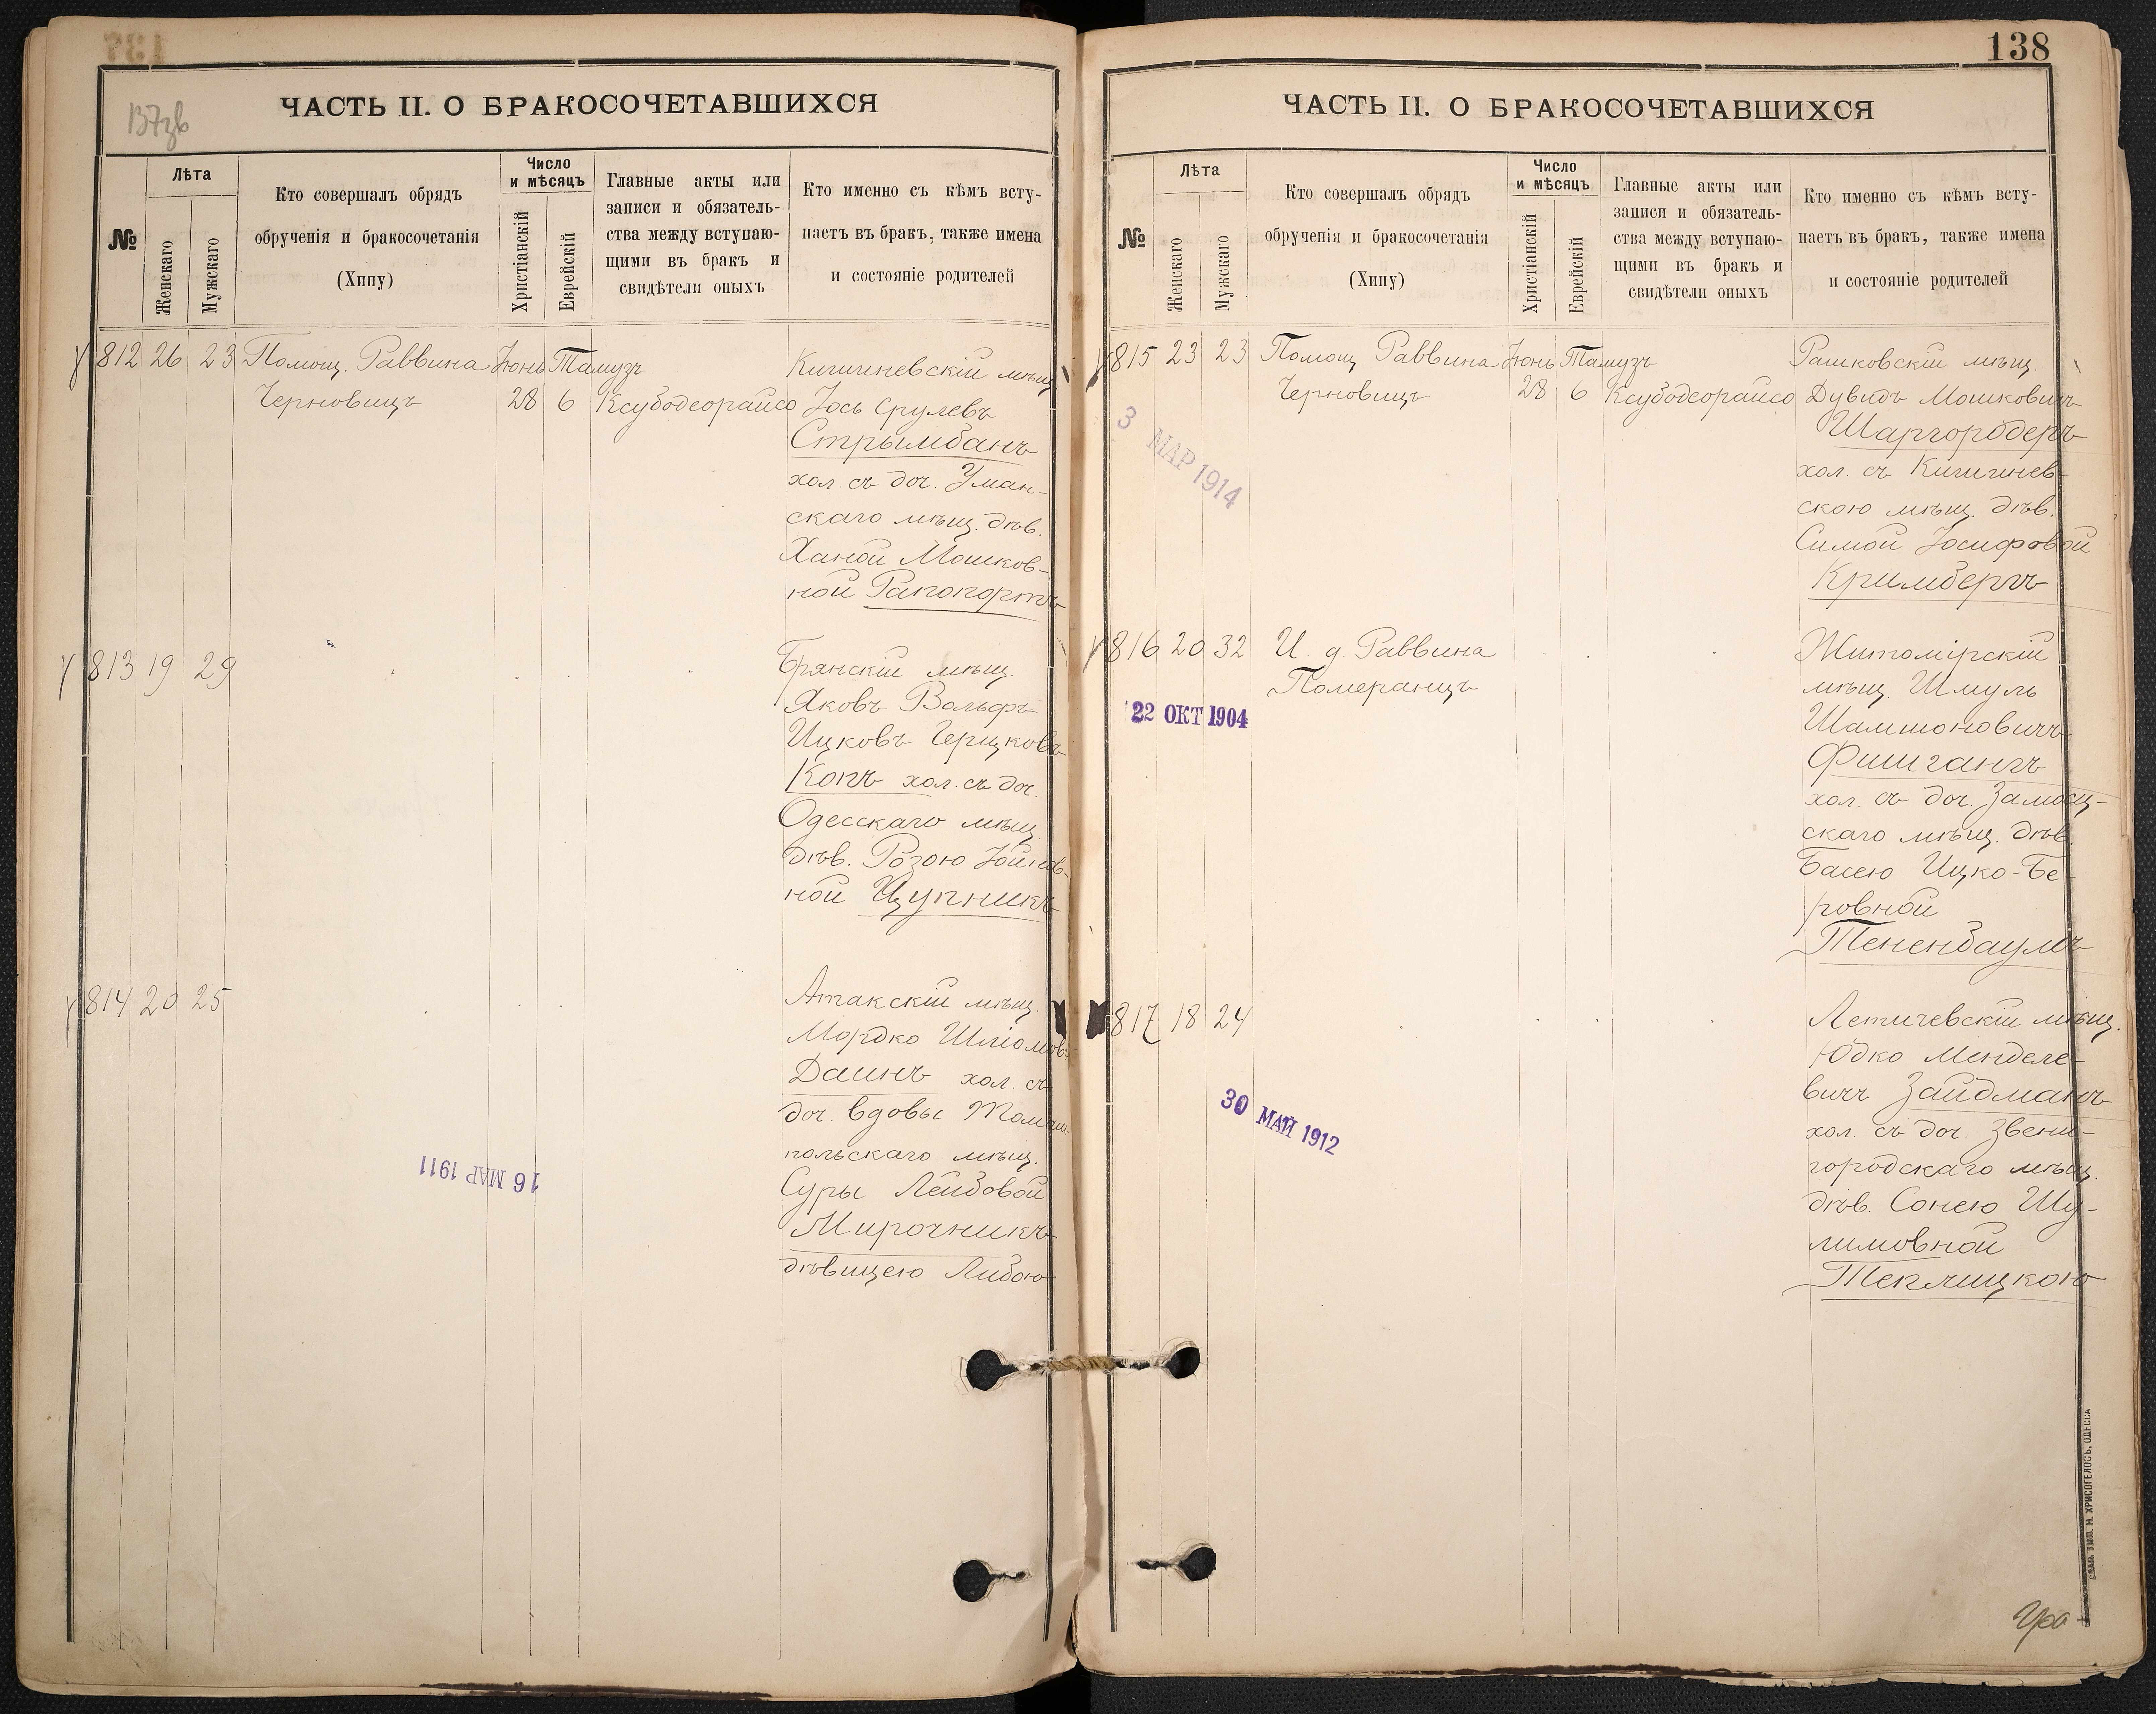 137зв
ЧАСТЬ II. О БРАКОСОЧЕТАВШИХСЯ
№
Лѣта
Женскаго
Мужскаго
Кто совершалъ обрядъ
обрученія и бракосочетанія
(Хипу)
Число
и мѣсяцъ
Христіанскій
Еврейскій
Главные акты или
записи и обязатель-
ства между вступаю-
щими въ бракъ и
свидѣтели оныхъ
Кто именно съ кѣмъ всту-
паетъ въ бракъ, также имена
и состояніе родителей
812 26 23 Помощ. Раввина Іюнь Тамузъ Кишиневскій мѣщ.
Черновицъ 28 6 Ксубодеорайсо Іось Срулевъ
Стрымбанъ
хол. съ доч. Уман-
скаго мѣщ. дѣв.
Ханой Мошков-
ной Рапопортъ
813 19 29 Брянскій мѣщ.
Яковъ Вольфъ
Ицковъ Герцковъ
Копъ хол. съ доч.
Одесскаго мѣщ.
дѣв. Розою Іойнов-
ной Цупникъ
814 20 25 Атакскій мѣщ.
Мордко Шліомовъ
Даинъ хол. съ
доч. вдовы Томаш-
польскаго мѣщ.
Суры Лейбовой
Мирочникъ
дѣвицею Либою
16 МАР 1911
138
ЧАСТЬ II. О БРАКОСОЧЕТАВШИХСЯ
№
Лѣта
Женскаго
Мужскаго
Кто совершалъ обрядъ
обрученія и бракосочетанія
(Хипу)
Число
и мѣсяцъ
Христіанскій
Еврейскій
Главные акты или
записи и обязатель-
ства между вступаю-
щими въ бракъ и
свидѣтели оныхъ
Кто именно съ кѣмъ всту-
паетъ въ бракъ, также имена
и состояніе родителей
815 23 23 Помощ. Раввина Іюнь Тамузъ Рашковскій мѣщ.
Черновицъ 28 6 Ксубодеорайсо Дувидъ Мошковичъ
Шаргородеръ
хол. съ Кишинев-
скою мѣщ. дѣв.
Симой Іосифовой
Кримбергъ
3 МАР 1914
816 20 32 И. д. Раввина Житомірскій
Померанцъ мѣщ. Шмуль
Шамшоновичъ
Фишгангъ
хол. съ доч. Замосц-
скаго мѣщ. дѣв.
Басею Ицко-Бе-
ровной
Тененбаумъ
22 ОКТ 1904
817 18 24 Летичевскій мѣщ.
Юдко Менделе-
вичъ Зайдманъ
хол. съ доч. Звени-
городскаго мѣщ.
дѣв. Сонею Шу-
лимовной
Теплицкою
30 МАЙ 1912
СЛАВ. ТИП. Н. ХРИСОГЕЛОСЪ, ОДЕССА